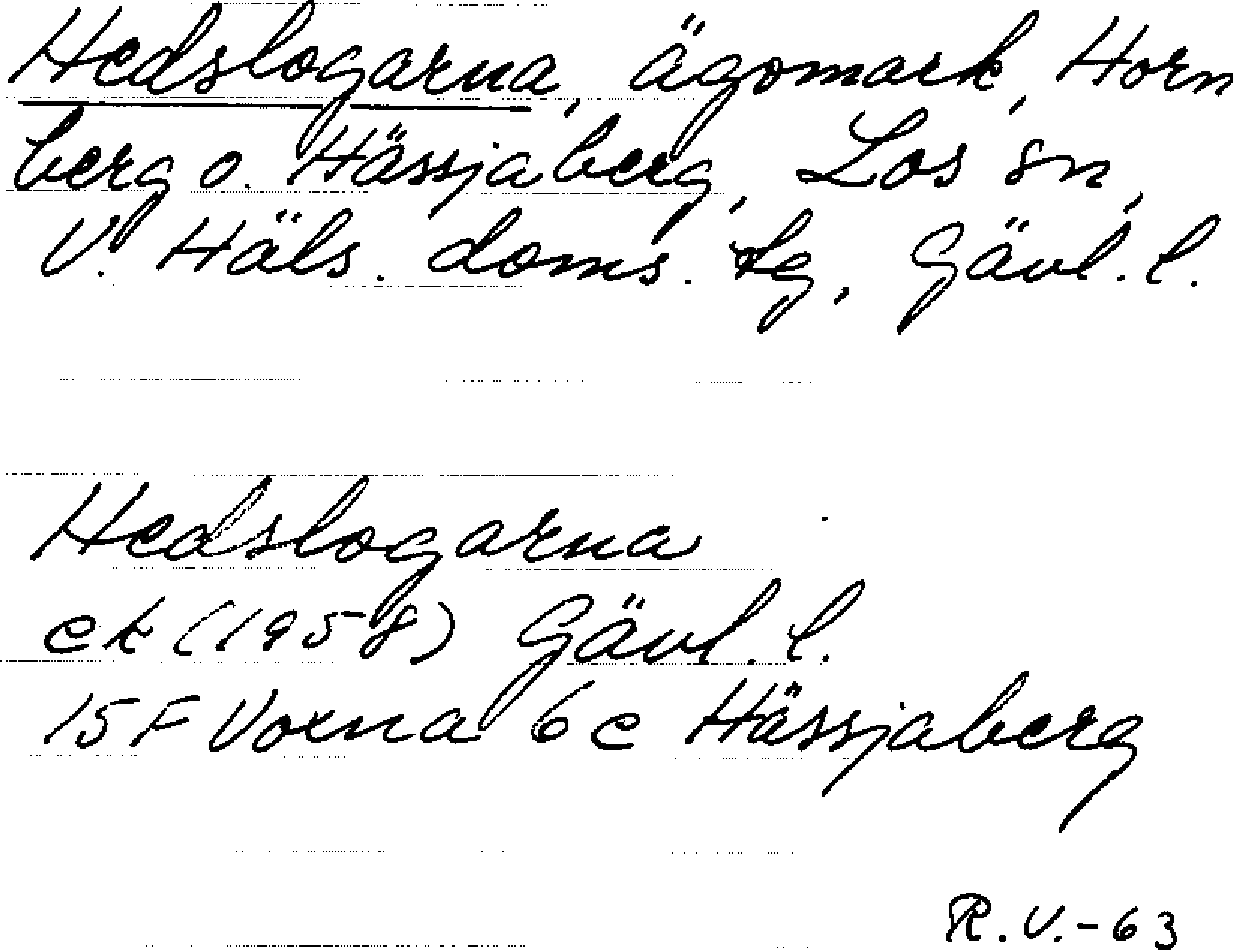 Hedslogarna, ägomark, Horn
berg o. Hässjaberg, Los sn,
V. Häls. doms. tg, Gävl. l.
Hedslogarna
ek (1958) Gävl. l.
15F Voxna 6c Hässjaberg
R.V.-63